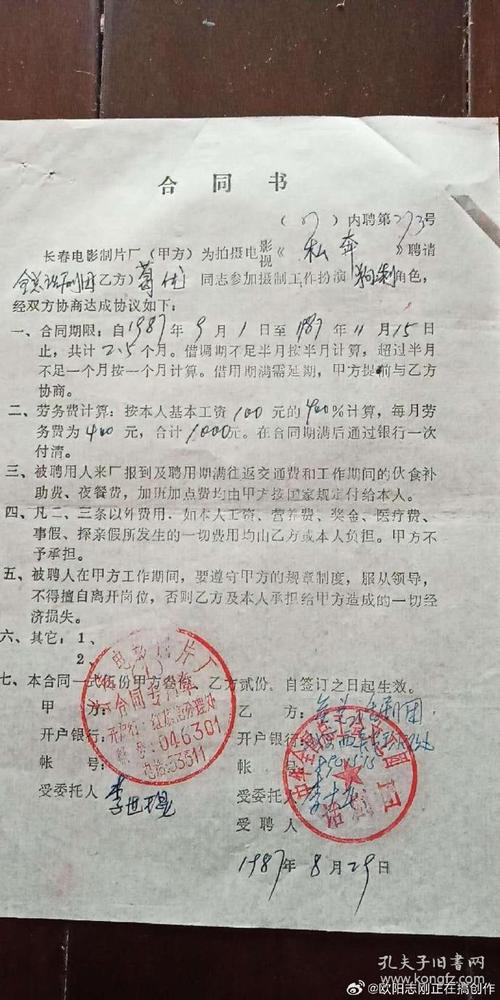 合同书
(87)内聘第273号
长春电影制片厂(甲方)为拍摄电影视《私奔》聘请
全总话剧团乙方)葛优同志参加摄制工作扮演角色,
经双方协商达成协议如下:
一、合同期限:自1987年9月1日至1987年11月15日
止,共计2.5个月。借调期不足半月按半月计算,超过半月
不足一个月按一个月计算。借用期满需延期,甲方提前与乙方
协商。
二、劳务费计算:按本人基本工资100元的400%计算,每月劳
务费为400元,合计1000元。在合同期满后通过银行一次
付清。
三、被聘用人来厂报到及聘用期满往返交通费和工作期间的伙食补
助费、夜餐费,加班加点费均由甲方按国家规定付给本人。
四、凡二、三条以外费用,如本人工资、营养费、奖金、医疗费、
事假、探亲假所发生的一切费用均由乙方或本人负担。甲方不
予承担。
五、被聘人在甲方工作期间,要遵守甲方的规章制度,服从领导,
不得擅自离开岗位,否则乙方及本人承担给甲方造成的一切经
济损失。
六、其它:1、
2、
七、本合同一式伍份甲方叁份,乙方贰份,自签订之日起生效。
甲方:
乙方:全总话剧团
开户银行:
开户银行:
帐号:
帐号:
受委托人
受委托人
受聘人
1987年8月29日
电影制片厂
合同专用章
046301
电话:53311
话剧团
孔夫子旧书网
@欧阳志刚正在搞创作